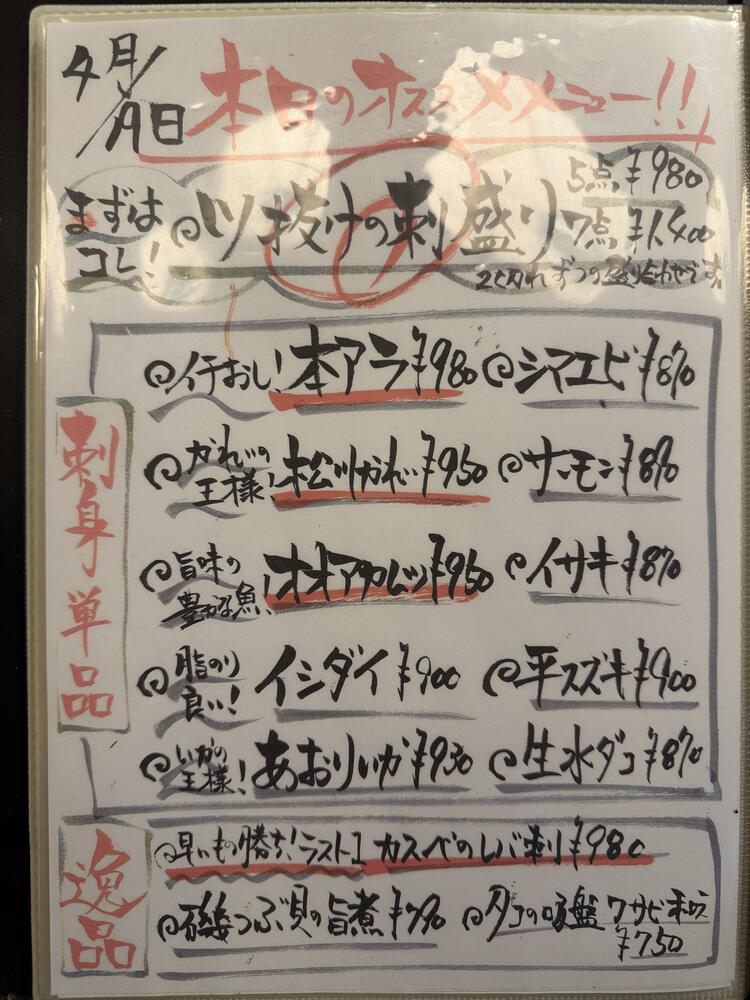 4月/
本日のオススメメニュー!!
まずは
コレ!
ツ抜けの刺盛り
5点¥980
7点¥1,400
2切れずつの盛り合わせです。
刺身単品
イチおし!本アラ¥980
シマエビ¥870
かれいの
王様!
松川かれい¥950
サーモン¥870
旨味の
豊かな魚!
オオアカムツ¥950
イサキ¥870
脂のり
良い!
イシダイ¥900
平スズキ¥900
いかの
王様!
あおりいか¥930
生水ダコ¥870
逸品
早いもの勝ち!ラスト1 カスベのレバ刺¥980
磯つぶ貝の旨煮¥790
タコの吸盤ワサビ和え
¥750